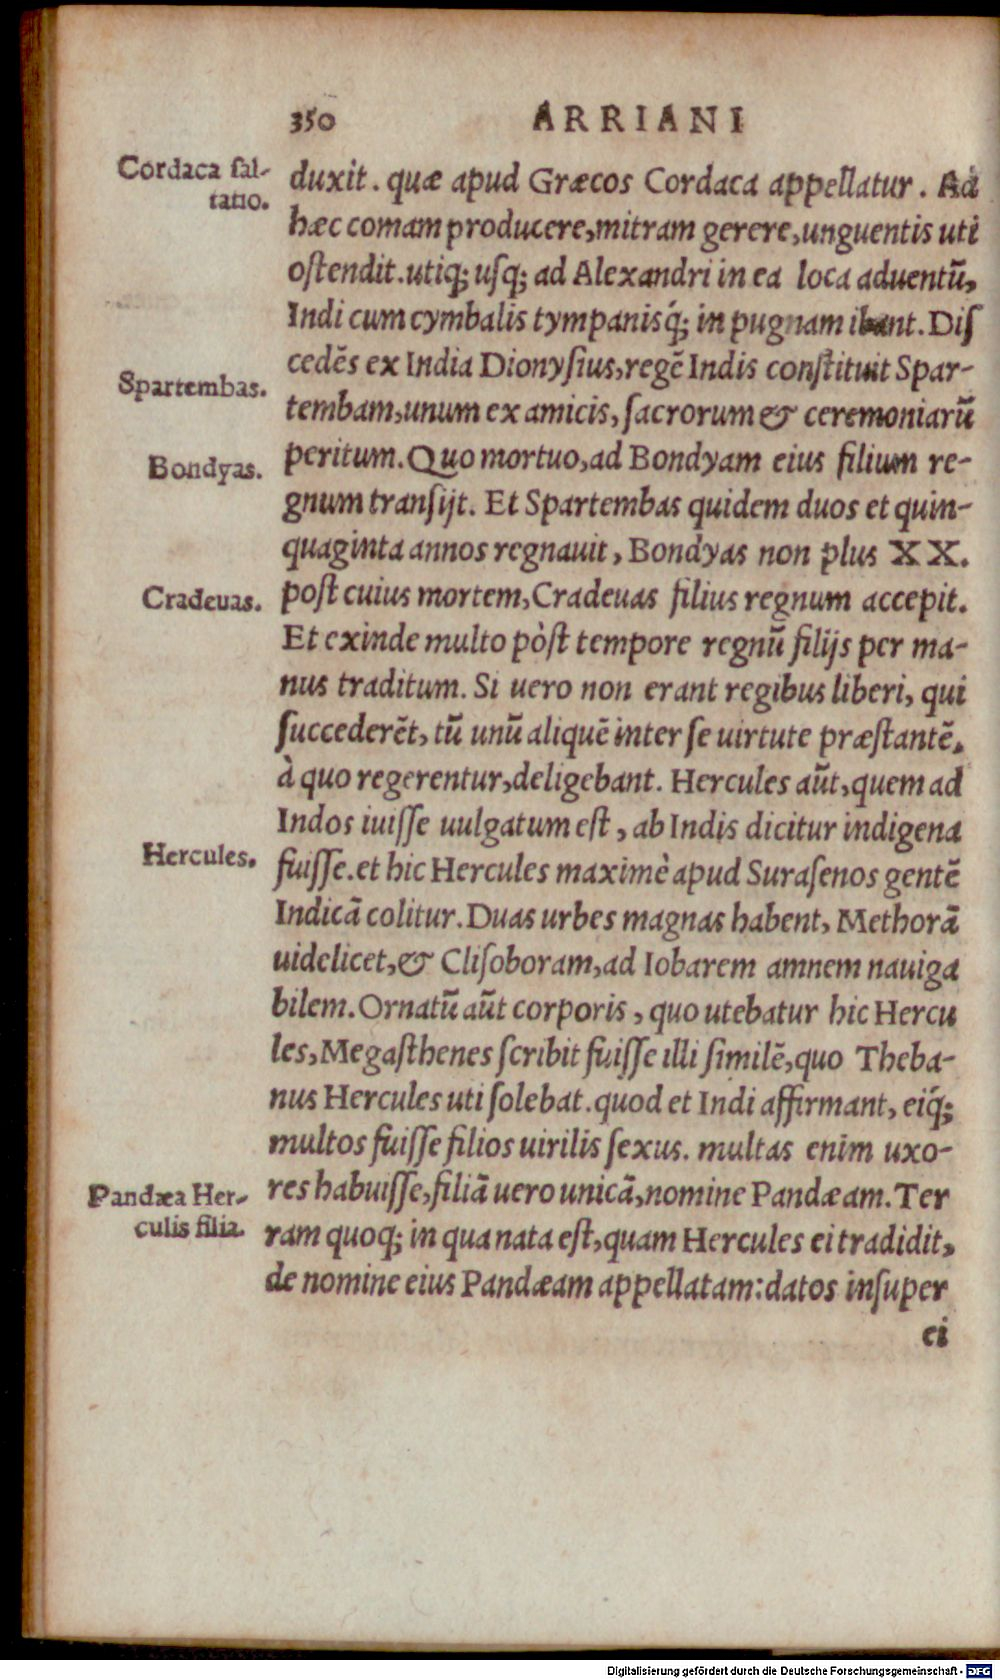 350 ARRIANI
Cordaca ſal-
tatio.
duxit. quæ apud Græcos Cordaca appellatur. Ad
hæc comam producere, mitram gerere, unguentis uti
oſtendit. utiq; uſq; ad Alexandri in ea loca aduentũ,
Indi cum cymbalis tympanisq́; in pugnam ibant. Diſ
cedẽs ex India Dionyſius, regẽ Indis conſtituit Spar-
Spartembas.
tembam, unum ex amicis, ſacrorum & ceremoniarũ
peritum. Quo mortuo, ad Bondyam eius filium re-
Bondyas.
gnum tranſijt. Et Spartembas quidem duos et quin-
quaginta annos regnauit, Bondyas non plus XX.
poſt cuius mortem, Cradeuas filius regnum accepit.
Cradeuas.
Et exinde multo pòſt tempore regnũ filijs per ma-
nus traditum. Si uero non erant regibus liberi, qui
ſuccederẽt, tũ unũ aliquẽ inter ſe uirtute præſtantẽ,
à quo regerentur, deligebant. Hercules aũt, quem ad
Indos iuiſſe uulgatum eſt, ab Indis dicitur indigena
Hercules.
fuiſſe. et hic Hercules maximè apud Suraſenos gentẽ
Indicã colitur. Duas urbes magnas habent, Methorã
uidelicet, & Cliſoboram, ad Iobarem amnem nauiga
bilem. Ornatũ aũt corporis, quo utebatur hic Hercu
les, Megaſthenes ſcribit fuiſſe illi ſimilẽ, quo Theba-
nus Hercules uti ſolebat. quod et Indi affirmant, eiq́;
multos fuiſſe filios uirilis ſexus. multas enim uxo-
Pandæa Her-
culis filia.
res habuiſſe, filiã uero unicã, nomine Pandæam. Ter
ram quoq; in qua nata eſt, quam Hercules ei tradidit,
de nomine eius Pandæam appellatam: datos inſuper
ei
Digitalisierung gefördert durch die Deutsche Forschungsgemeinschaft - DFG